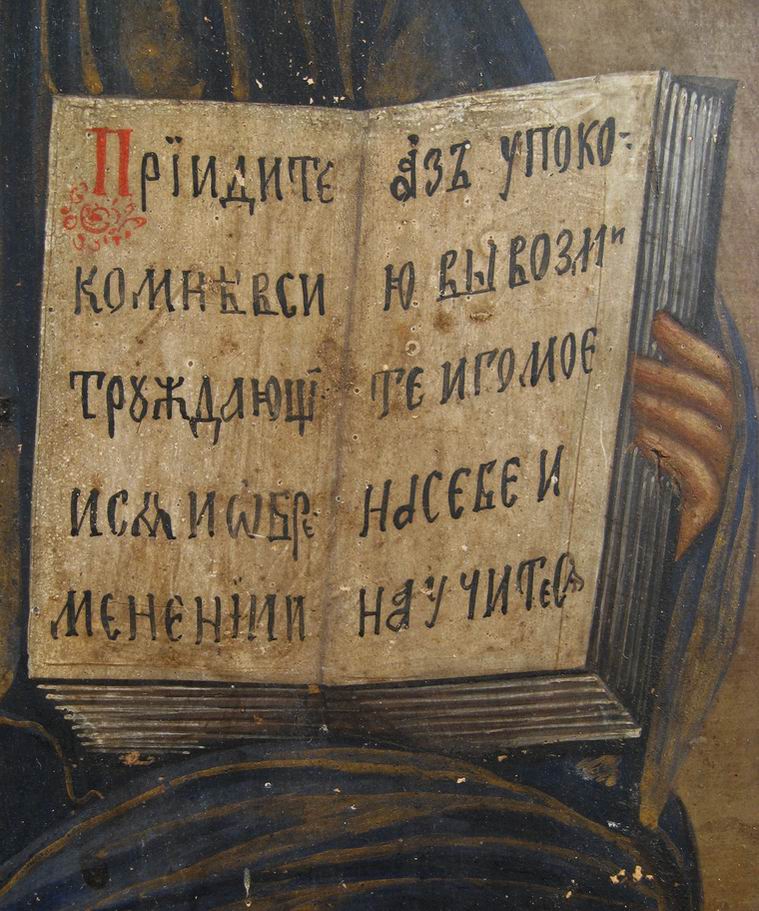 Прїидите
комнѣвси
трꙋждающї
исѧ и ѡбре
мененїии
азъ упоко-
ю вы возми
те игомоє
насебе и
научитесѧ